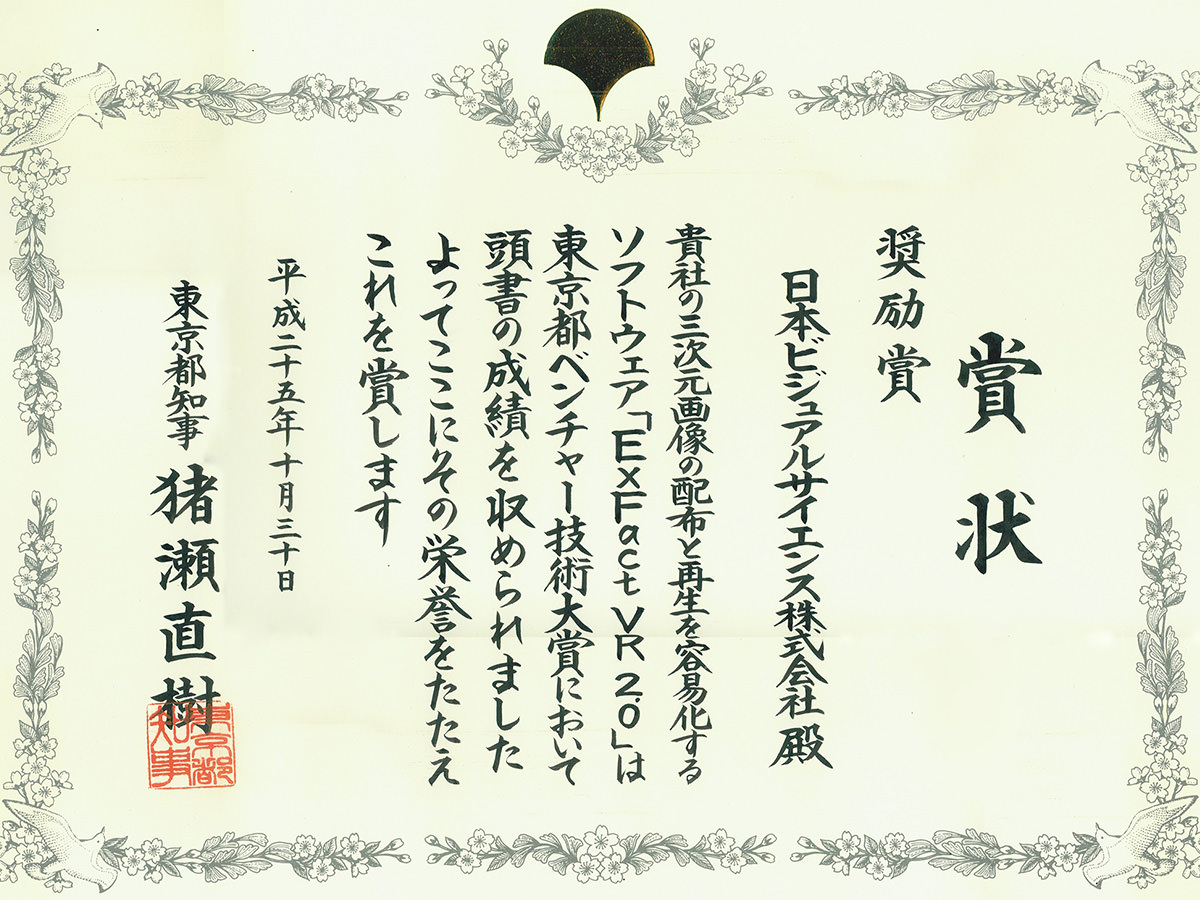 賞状
奨励賞
日本ビジュアルサイエンス株式会社殿
貴社の三次元画像の配布と再生を容易化する
ソフトウェア「ExFact VR 2.0」は
東京都ベンチャー技術大賞において
頭書の成績を収められました
よってここにその栄誉をたたえ
これを賞します
平成二十五年十月三十日
東京都知事 猪瀬直樹
東京都
知事